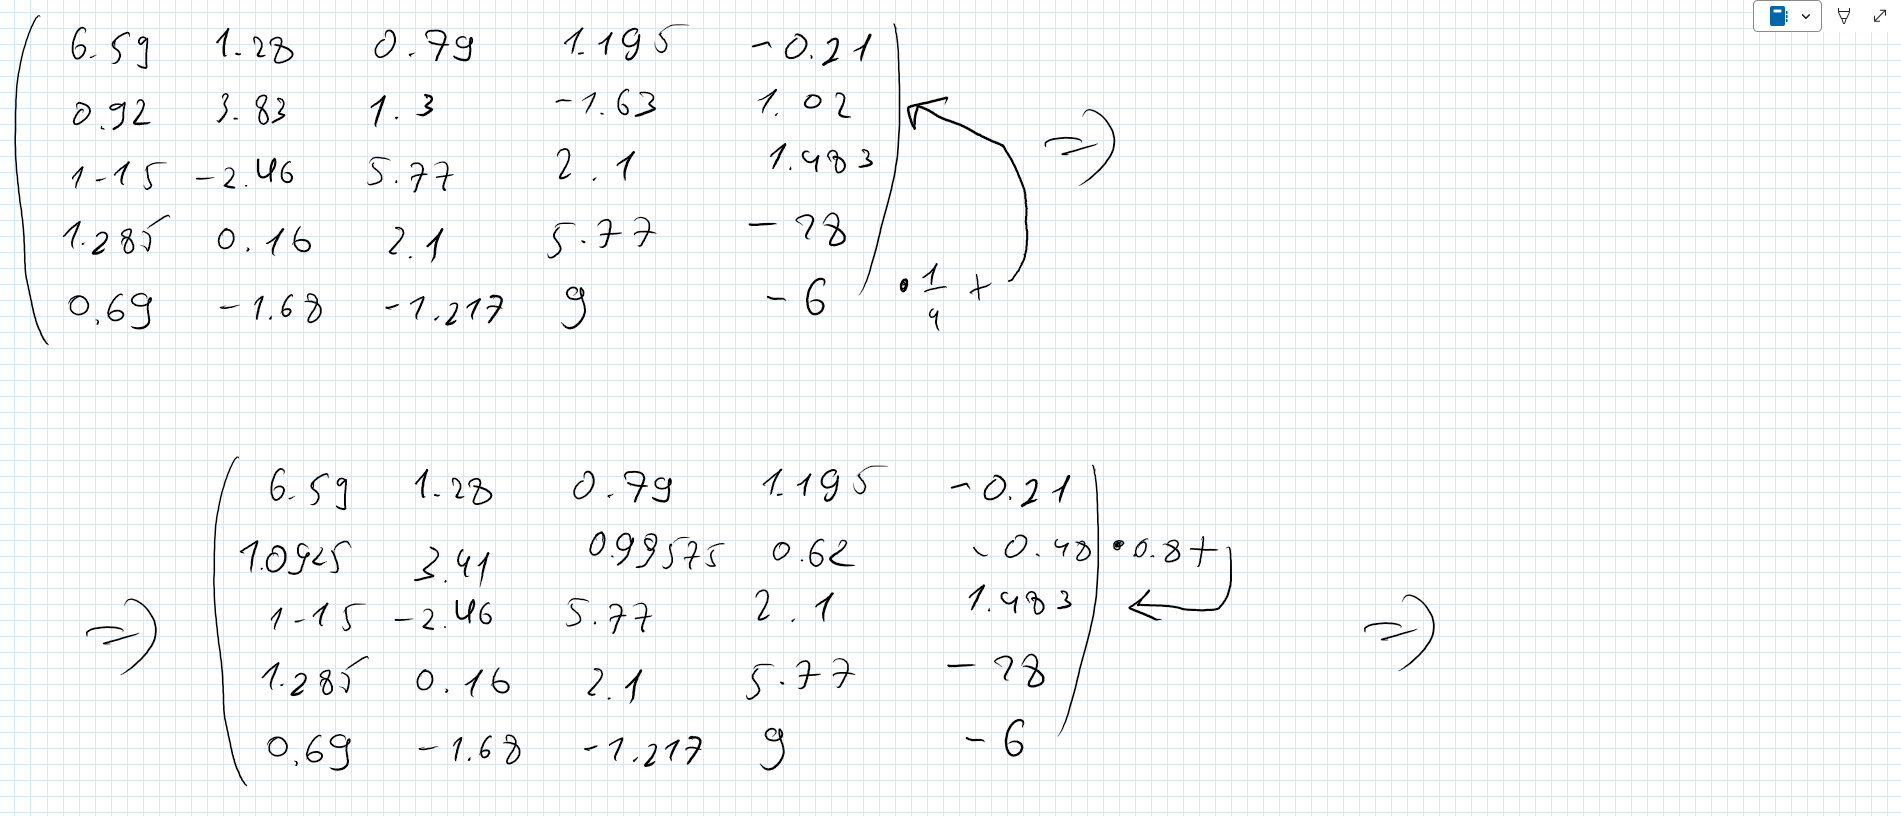 6.59 1.28 0.79 1.195 -0.21
0.92 3.83 1.3 -1.63 1.02
1.15 -2.46 5.77 2.1 1.483
1.285 0.16 2.1 5.77 -28
0.69 -1.68 -1.217 9 -6 · 1/4 +
⇒
⇒
6.59 1.28 0.79 1.195 -0.21
1.0925 3.41 0.99575 0.62 -0.48 · 0.8 +
1.15 -2.46 5.77 2.1 1.483
1.285 0.16 2.1 5.77 -28
0.69 -1.68 -1.217 9 -6
⇒